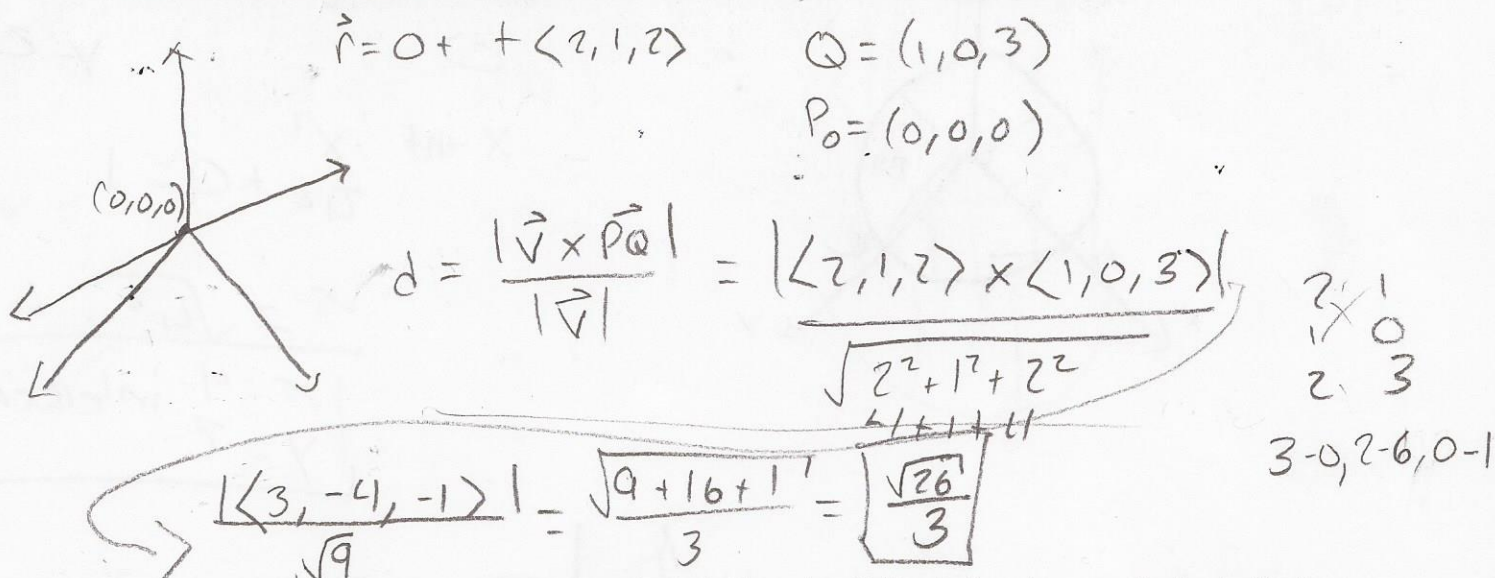 r⃗ = 0 + t <2,1,2>
Q = (1,0,3)
P₀ = (0,0,0)
(0,0,0)
d = |v⃗ × PQ⃗| / |v⃗| = |<2,1,2> × <1,0,3>| / √(2²+1²+2²)
4+1+4
2 1
1 0
2 3
3-0, 2-6, 0-1
|<3,-4,-1>| / √9 = √(9+16+1) / 3 = √26 / 3